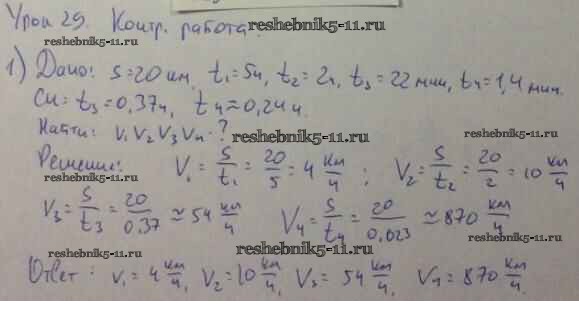 Урок 29. Контр. работа.
reshebnik5-11.ru
reshebnik5-11.ru
1) Дано: S=20 км, t₁=5ч, t₂=2ч, t₃=22 мин, t₄=1,4 мин.
reshebnik5-11.ru
СИ: t₃=0,37ч, t₄≈0,24ч.
Найти: V₁ V₂ V₃ V₄ - ? reshebnik5-11.ru
Решение: V₁ = S/t₁ = 20/5 = 4 км/ч; V₂ = S/t₂ = 20/2 = 10 км/ч
reshebnik5-11.ru
V₃ = S/t₃ = 20/0,37 ≈ 54 км/ч V₄ = S/t₄ = 20/0,023 ≈ 870 км/ч
reshebnik5-11.ru
reshebnik5-11.ru
Ответ: V₁ = 4 км/ч, V₂ = 10 км/ч, V₃ = 54 км/ч, V₄ = 870 км/ч.
reshebnik5-11.ru